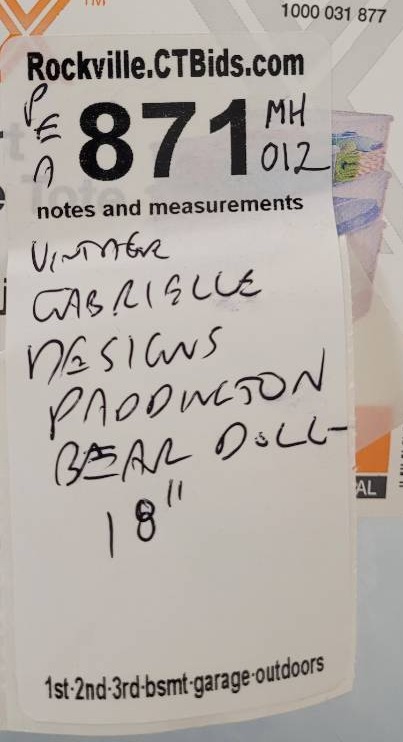 TM
1000 031 877
Rockville.CTBids.com
PEA
871
MH
012
notes and measurements
VINTAGE
GABRIELLE
DESIGNS
PADDINGTON
BEAR DOLL
18"
AL
1st-2nd-3rd-bsmt-garage-outdoors